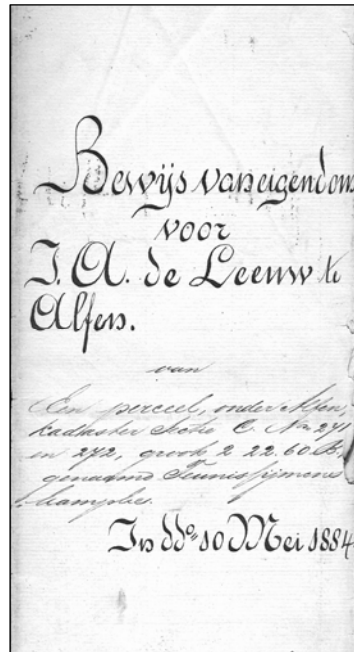 Bewijs van eigendom
voor
J. A. de Leeuw te
Alfen.
van
Een perceel, onder Alfen,
kadaster Sectie C. No 271
en 272, groot 2.22.60 B,
genaamd Teunissijmens
kampke.
In ddo 10 Mei 1884